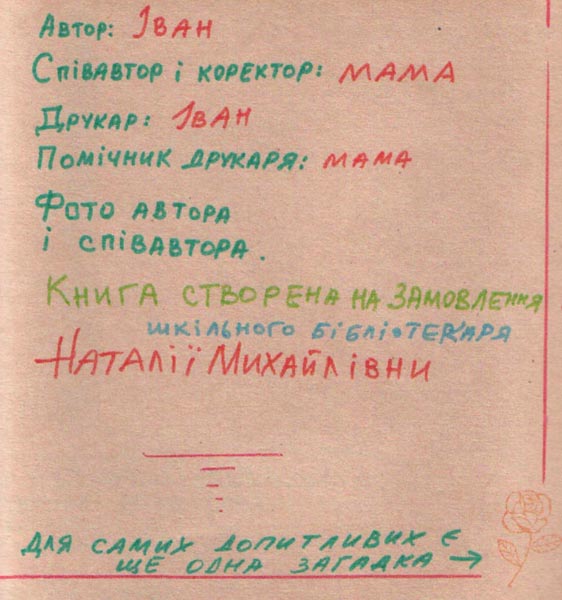 Автор: Іван
Співавтор і коректор: мама
Друкар: Іван
Помічник друкаря: мама
Фото автора
і співавтора.
Книга створена на замовлення
шкільного бібліотекаря
Наталії Михайлівни
Для самих допитливих є
ще одна загадка →